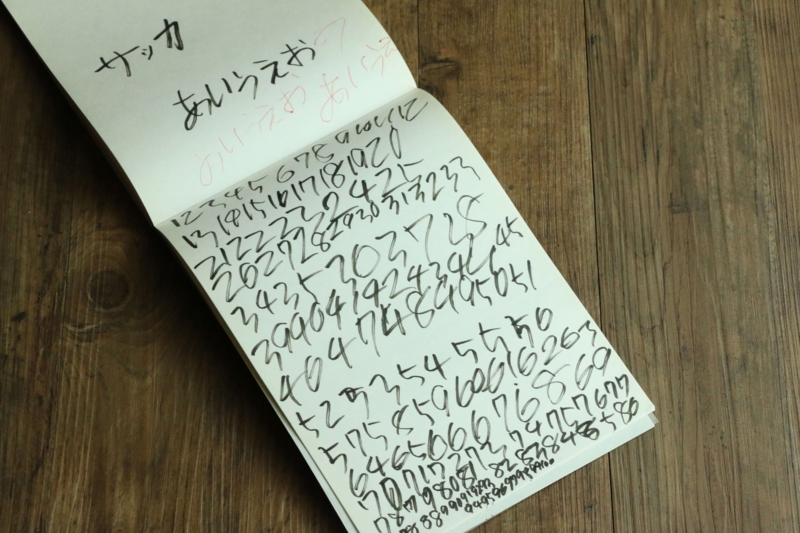 サッカ
あいうえおつ
あいうえお あいうえ
12 3 4 5 6 7 8 9 10 11 12
13 14 15 16 17 18 19 20
21 22 23 24 25
26 27 28 29 30 31 32 33
34 35 36 37 38
39 40 41 42 43 44 45
46 47 48 49 50 51
52 53 54 55 56
57 58 59 60 61 62 63
64 65 66 67 68 69
70 71 72 73 74 75 76 77
78 79 80 81 82 83 84 85 86